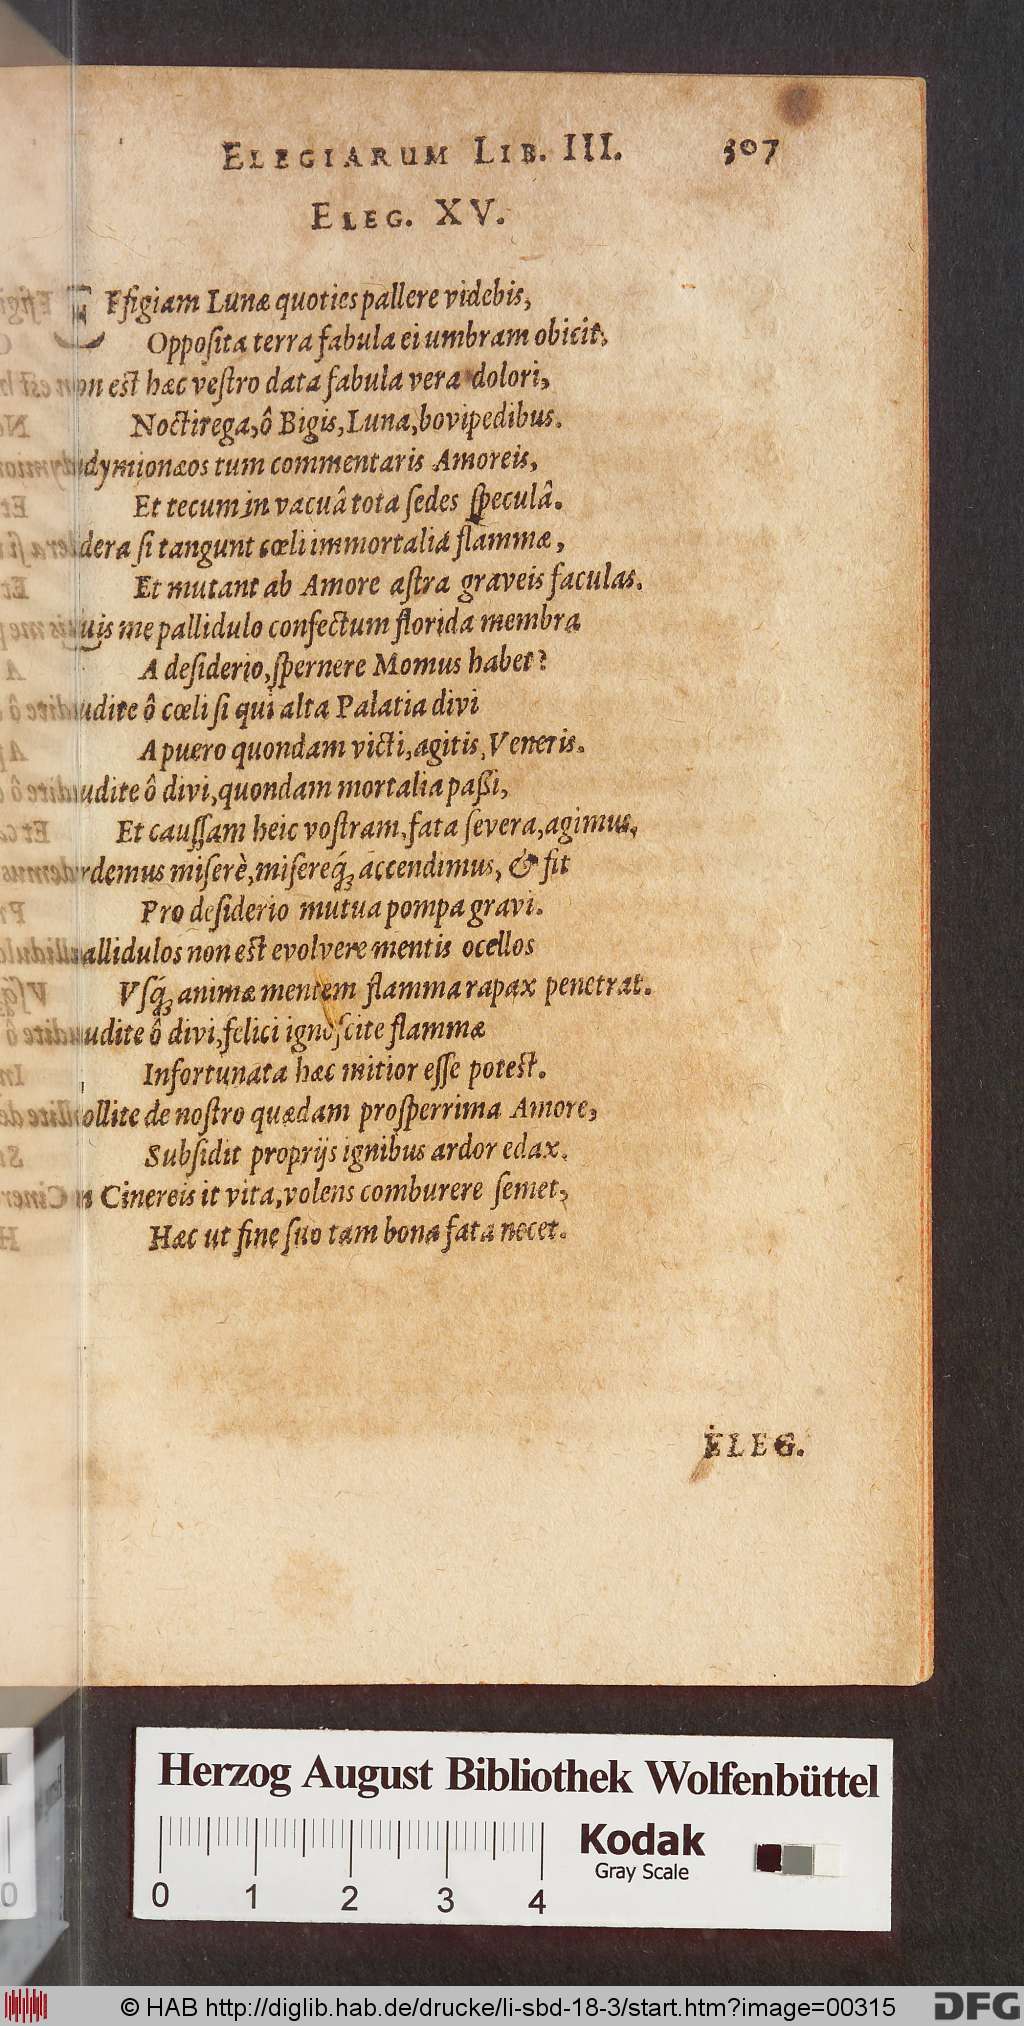 ELEGIARUM LIB. III. 307
ELEG. XV.
Effigiam Lunæ quoties pallere videbis,
Opposita terra fabula ei umbram obicit.
non est hæc vestro data fabula vera dolori,
Noctirega, ô Bigis, Luna, bovipedibus.
dymionæos tum commentaris Amoreis,
Et tecum in vacuâ tota sedes speculâ.
dera si tangunt cœli immortalia flammæ,
Et mutant ab Amore astra graveis faculas.
uis me pallidulo confectum florida membra
A desiderio, spernere Momus habet?
udite ô cœli si qui alta Palatia divi
A puero quondam victi, agitis, Veneris.
udite ô divi, quondam mortalia paßi,
Et caussam heic vostram, fata severa, agimus.
rdemus miserè, misereq́; accendimus, & fit
Pro desiderio mutua pompa gravi.
allidulos non est evolvere mentis ocellos
Vsq́; animæ mentem flamma rapax penetrat.
udite ô divi, felici ignoscite flammæ
Infortunata hæc mitior esse potest.
ollite de nostro quædam prosperrima Amore,
Subsidit proprijs ignibus ardor edax.
n Cinereis it vita, volens comburere semet,
Hæc ut fine suo tam bona fata necet.
ELEG.
Herzog August Bibliothek Wolfenbüttel
0 1 2 3 4
Kodak
Gray Scale
© HAB http://diglib.hab.de/drucke/li-sbd-18-3/start.htm?image=00315
DFG